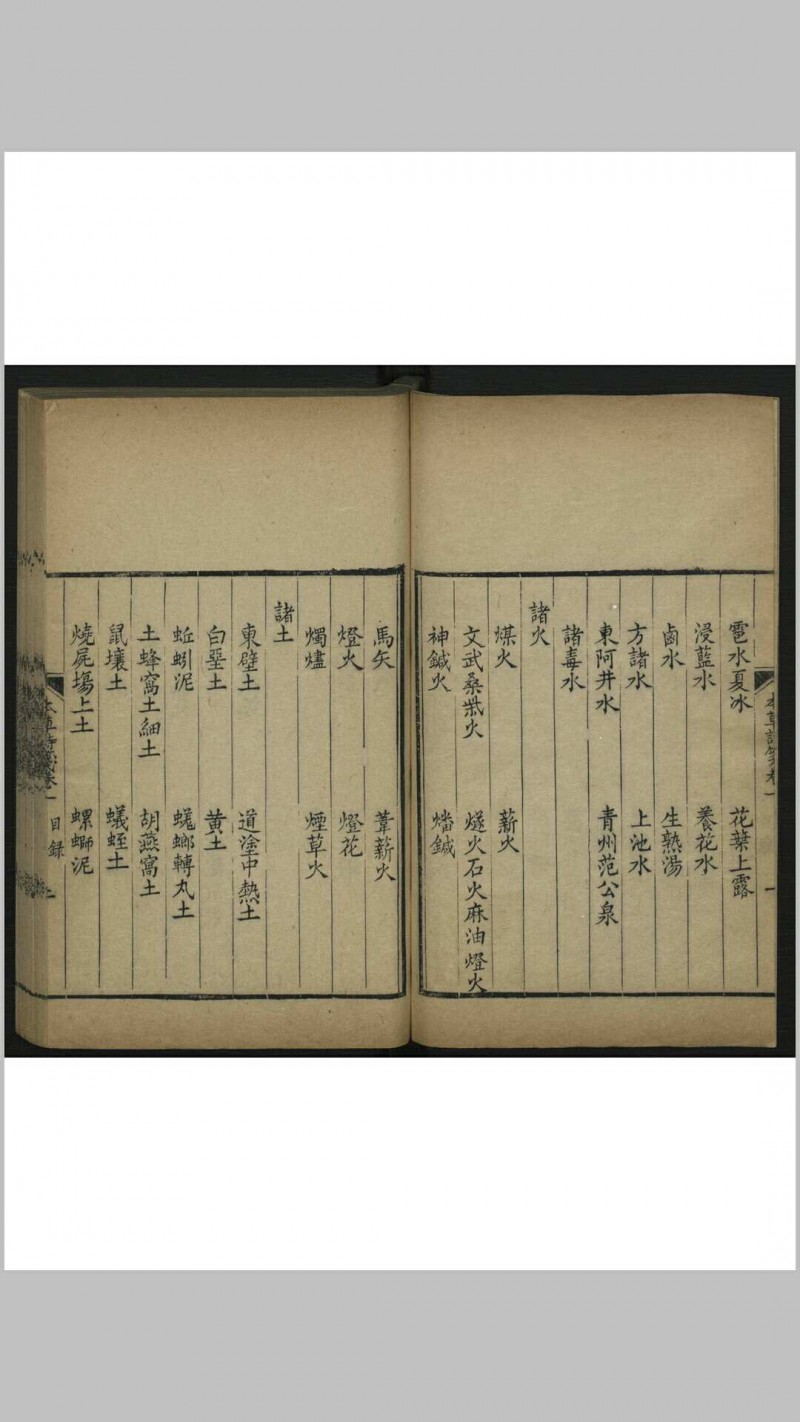 雹水夏冰 花葉上露
浸藍水 養花水
鹵水 生熟湯
方諸水 上池水
東阿井水 青州范公泉
諸毒水
諸火
煤火 薪火
文武桑柴火 燧火石火麻油燈火
神鍼火 燔鍼
馬矢 葦薪火
燈火 燈花
燭燼 煙草火
諸土
東壁土 道塗中熱土
白堊土 黃土
蚯蚓泥 蜣螂轉丸土
土蜂窩土細土 胡燕窩土
鼠壤土 蟻蛭土
燒屍塲上土 螺螄泥
目錄